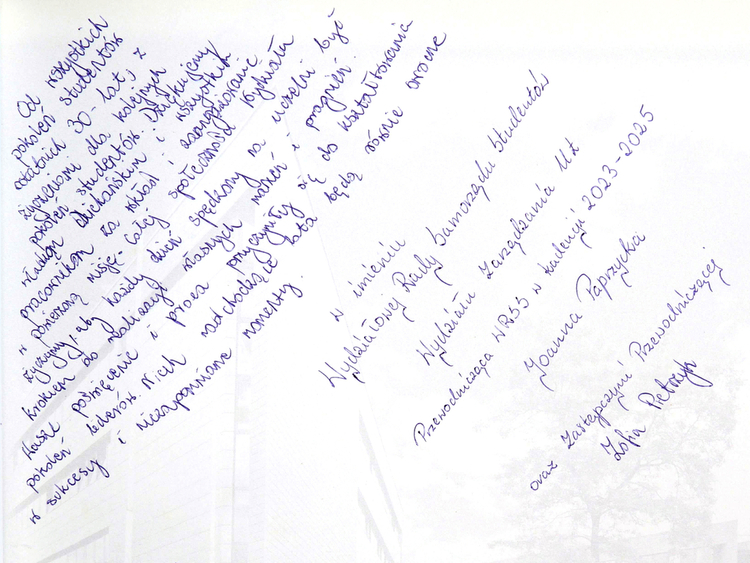 Od wszystkich
pokoleń studentów
ostatnich 30-lat, z
życzeniami dla kolejnych
pokoleń studentów. Dziękujemy
władzom dziekańskim i wszystkim
pracownikom za wkład i zaangażowanie
w powierzoną misję. Całej społeczności Wydziału
życzymy, aby każdy dzień spędzony na uczelni był
krokiem do realizacji własnych marzeń i pragnień.
Wasze poświęcenie i praca przyczyniły się do kształtowania
pokoleń liderów. Niech nadchodzące lata będą równie owocne
w sukcesy i niezapomniane momenty.
w imieniu
Wydziałowej Rady Samorządu Studentów
Wydziału Zarządzania UŁ
Przewodnicząca WRSS w kadencji 2023-2025
Joanna Paprzycka
oraz Zastępczyni Przewodniczącej
Zofia Pietrzyk